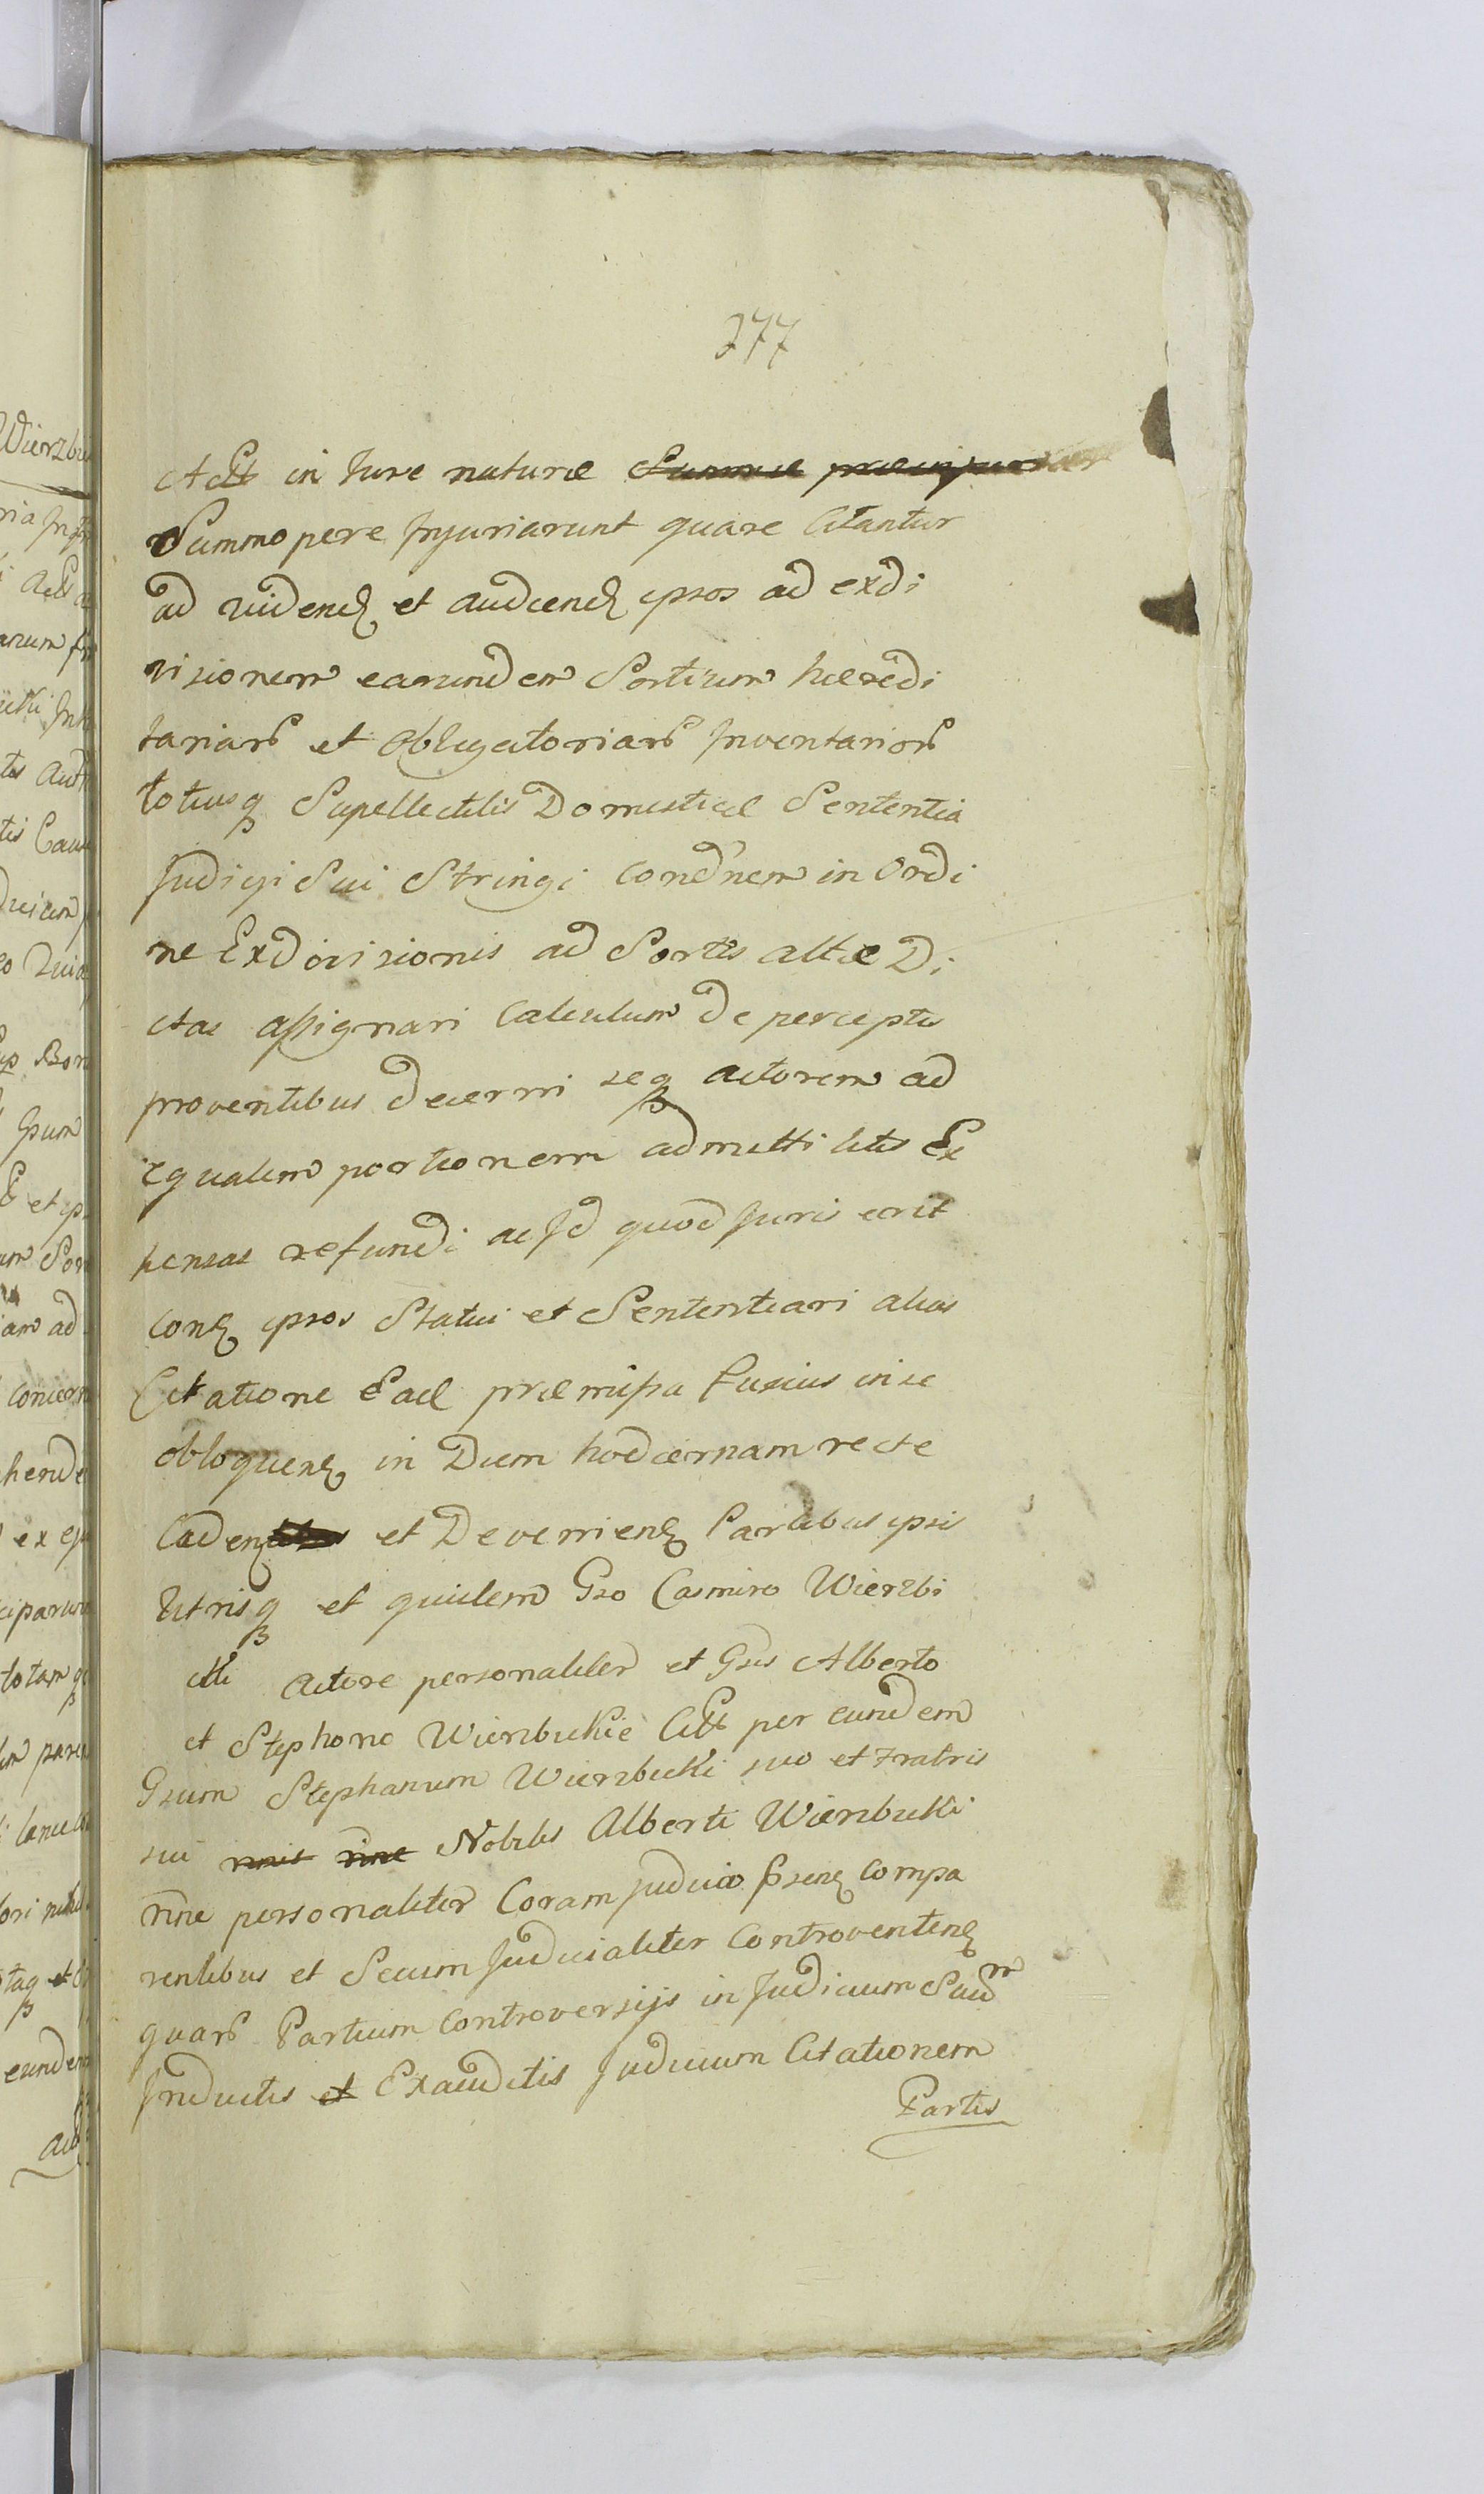 377
Actt in Jure naturæ Summæ præinjuriar
Summopere Injuriarunt quare Citantur
ad videnđ et audienđ ipsos ad exdi
visionem earundem Sortium hæredi
tariarū et Obligatoriarū Inventariorū
totiusq Supellectilis Domesticæ Sententia
Judicij Sui Stringi Condnem in Ordi
ne Exdivisionis ad Sortes altæ Di
ctas assignari Calculum de perceptis
proventibus decerni seq actorem ad
equalem portionem admitti litis Ex
pensas refundi ac Id quod Juris erit
Conz ipsos Statui et Sententiari alias
Citatione Eaq præmissa fusius in se
obloquenz in Diem hodiernam recte
Cadenz et Devenienz Partibus ipsis
Utrisq et quidem Gso Casimiro Wierzbi
cki actore personaliter et Gsis Alberto
et Stephano Wierzbickie Citt per eundem
Gsum Stephanum Wierzbicki suo et Fratris
sui nnis nne Nobilis Alberti Wierzbicki
nne personaliter Coram Judicio psenz Compa
rentibus et Secum Judicialiter Controventenz
quarū Partium Controversijs in Judicium Suum
Inductis et Exauditis Judicium Citationem
Partis